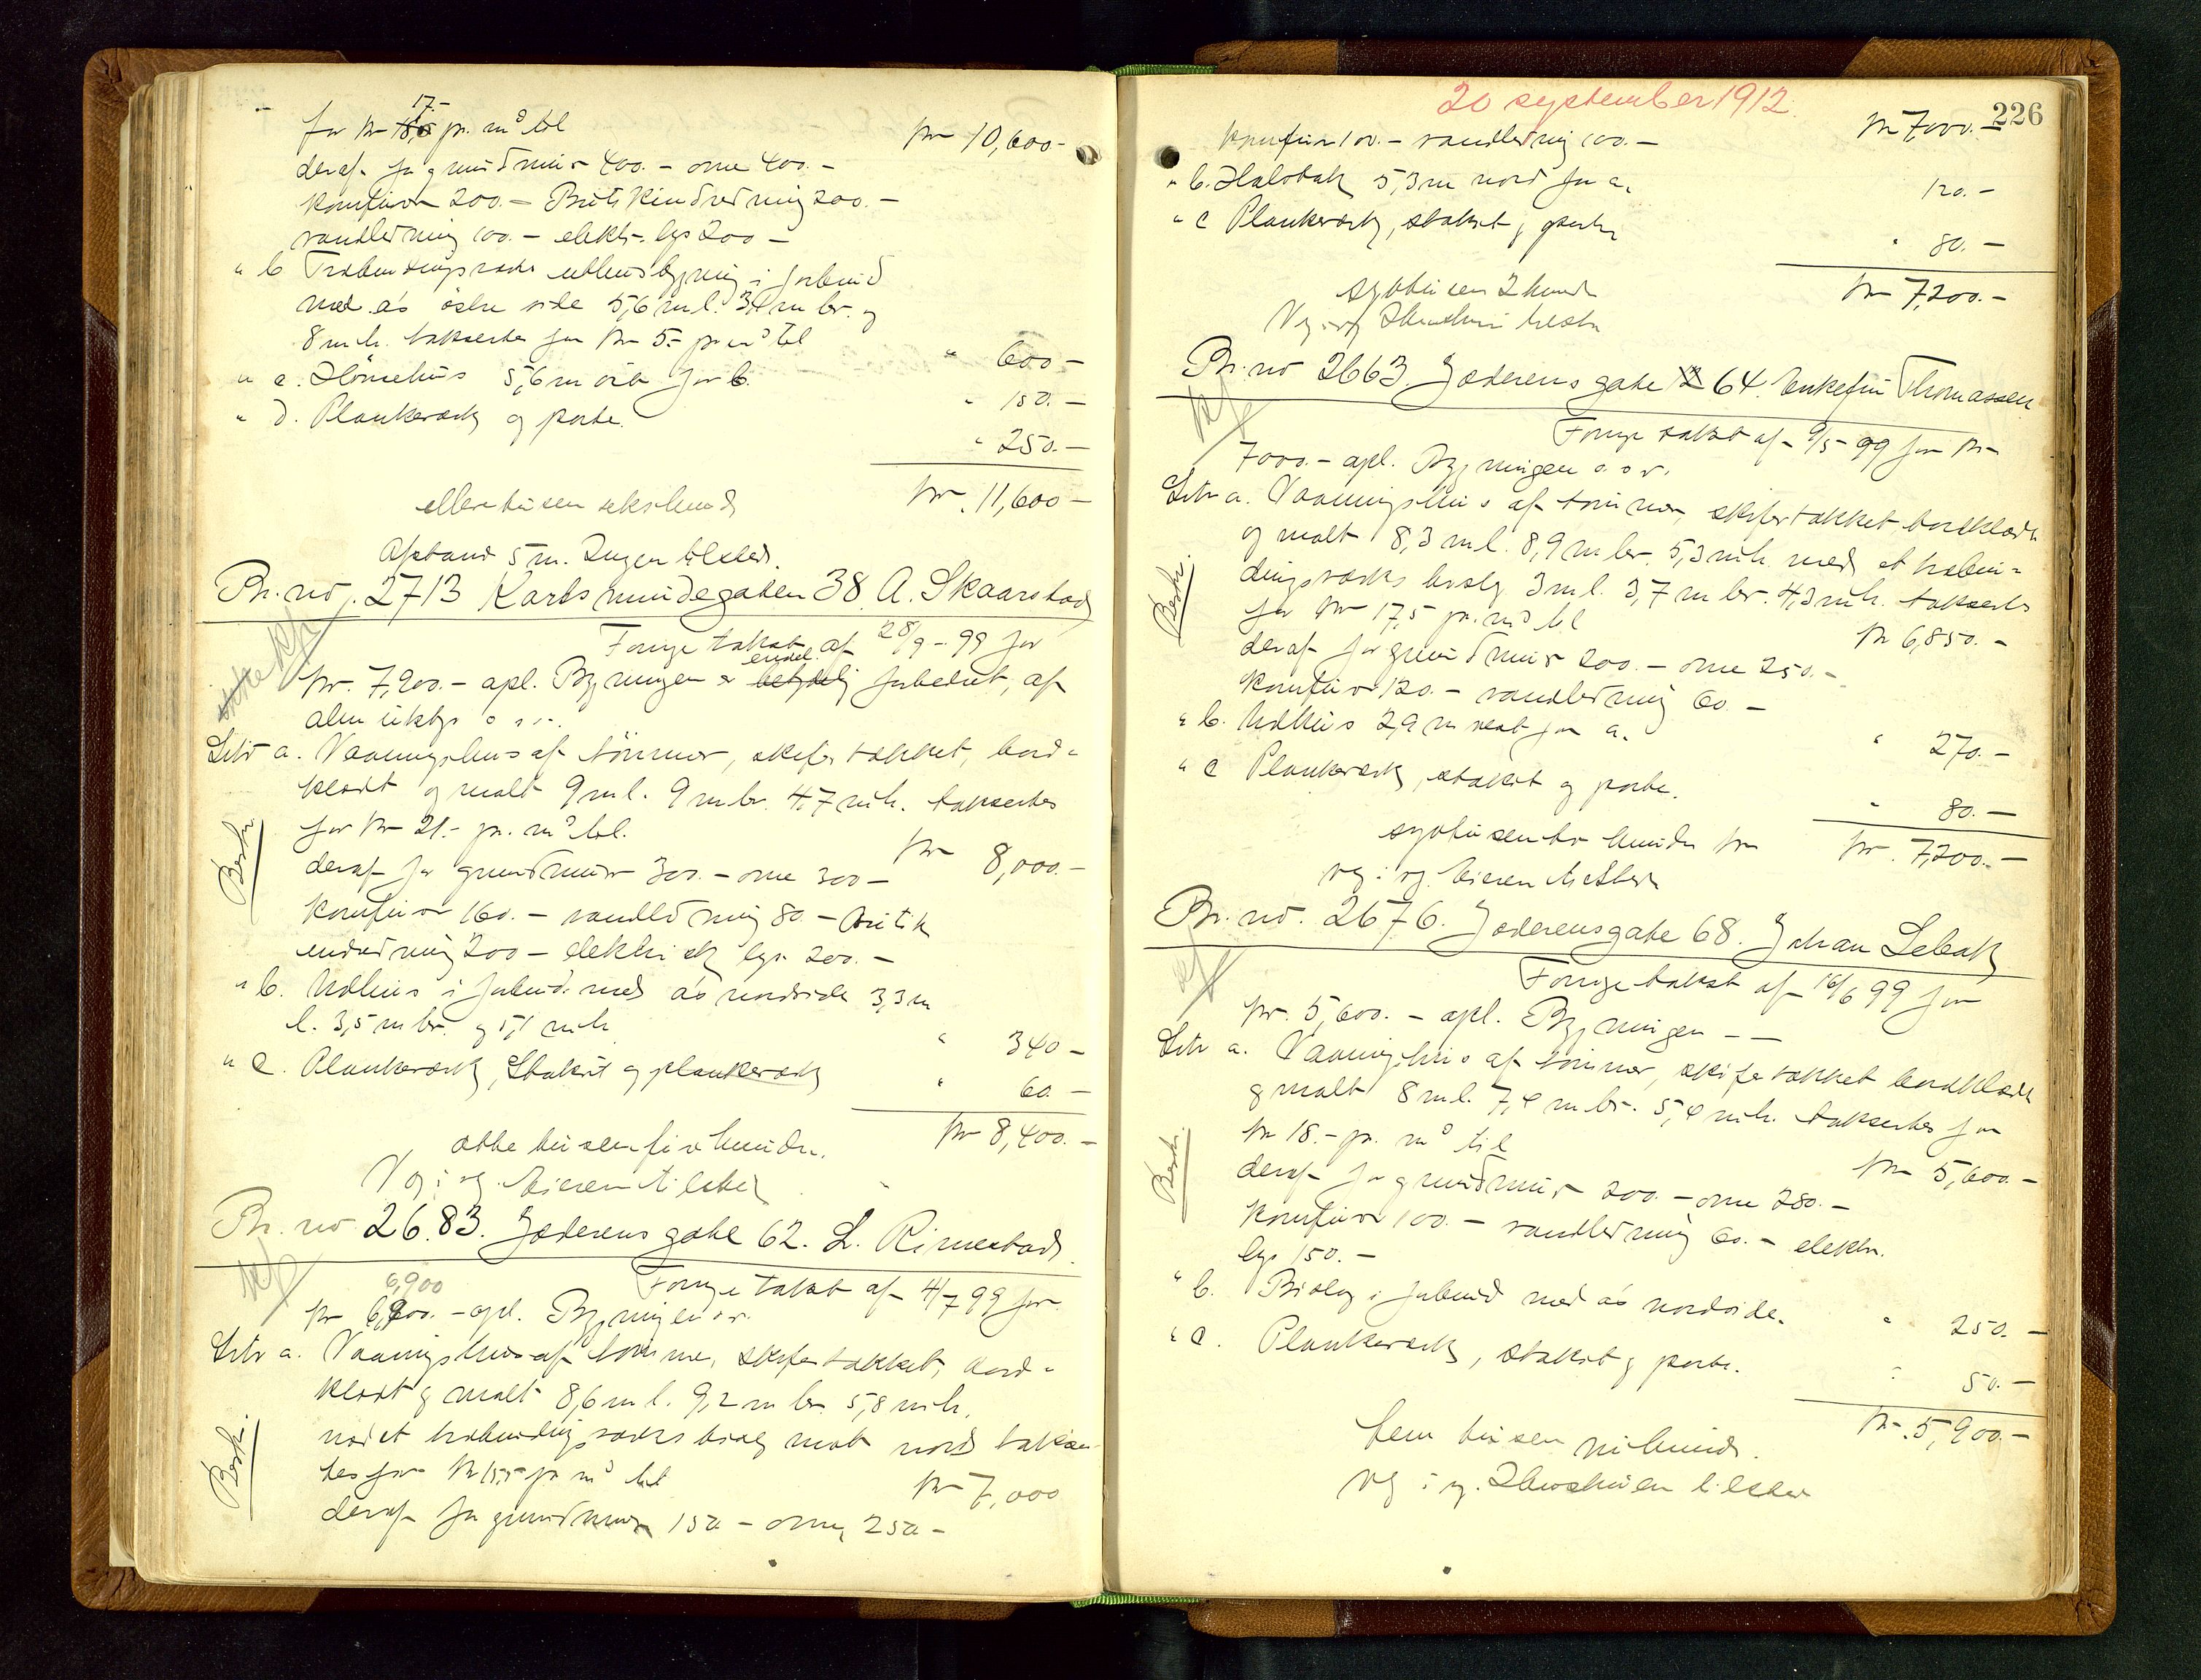 for Kr 17.- pr. m³ til Kr 10,600-
deraf for grundmur 400.- ovne 400.-
komfurer 200.- Butikindredning 200.-
vandledning 100.- elektr. lys 200-
" b Træbindingsværks udhusbygning i forbind
med a's østre side 5,6 m l. m br. og
8 m h. takseres for Kr 5.- pr m³ til " 600-
" c. Hönsehus 5,6 m öst for b. " 150.-
" d. Plankeværk og porte. " 250.-
Kr. 11,600-
elleve tusen sekshund
Afstand 5 m. Ingen tilsted.
Br. no. 2713 Karlsmindegaten 38 A. Skaarstad
Forrige takst af 28/9-99 for
Kr. 7,200.- opl. Bygningen er endel betydelig forbedret, af
alm
Litr a. Vaaningshus af tömmer, skifertækket, bord-
klædt og malt 9 m l. 9 m br. 4,7 m h. takseres
for Kr 21.- pr. m³ til. Kr 8,000.-
Besk.
deraf for grundmur 300.- ovne 300-
komfurer 160.- vandledning 80.- Butik
indredning 200- elektrisk lys 200.-
" b. Udhus i forbind. med a's nordside 3,3 m
l. 3,5 m br. og 5,1 m h. " 340-
" c. Plankeværk, Stakit og plankeværk " 60.-
Kr 8,400.-
otte tusen fire hundre.
Vg i vg. Eieren tilsted
Br. no 2683. Jæderens gate 62. L. Rimestad
6,900
Forrige takst af 4/7 99 for
Kr 6,900.- opl. Bygningen o v.
Litr a. Vaaningshus af tömmer, skifertækket, bord-
klædt og malt 8,6 m l. 9,2 m br. 5,8 m h.
med et træbindingsværks bislag mot nord takse-
Besk.
res for Kr 15,5 pr m³ til Kr 7,000
deraf for grundmur 150- ovne 250-
20 september 1912.
226
komfurer 100.- vandledning 100.- Kr 7,000.-
" b. Halvtak 5,3 m nord for a. 120.-
" c Plankeværk, stakit og porter " 80.-
Kr 7,200.-
syvtusen 2 hund
Vg i vg Hustruen tilsted
Br. no 2663. Jæderens gate 64. Enkefru Thomassen
Forrige takst af 9/5-99 for Kr
7000.- opl. Bygningen o. s. v.
Litr a. Vaaningshus af tömmer, skifertækket bordklædt
og malt 8,3 m l. 8,9 m br. 5,3 m h. med et træbin-
dingsværks bislag 3 m l. 3,7 m br. 4,3 m h. takseres
Besk.
for Kr 17,5 pr. m³ til Kr 6,850.-
deraf for grundmur 200.- ovne 250.-
komfurer 120.- vandledning 60.-
" b. Udhus 2,9 m vest for a. " 270.-
" c Plankeværk, stakit og porte. " 80.-
Kr. 7,200.-
syvtusen to hundre Kr
Vg i vg. Eieren tilsted
Br. no. 2676. Jæderensgate 68. Johan Sebak
Forrige takst af 16/6 99 for
Kr. 5,600.- opl. Bygningen --
Litr a. Vaaningshus af tömmer, skifertækket bordklædt
og malt 8 m l. 7,4 m br. 5,4 m h. takseres for
Kr 18.- pr. m³ til Kr 5,600.-
Besk.
deraf for grundmur 200.- ovne 280.-
komfurer 100.- vandledning 60.- elektr.
lys 150.-
" b. Bislag i forbind med a's nordside. " 250.-
" c. Plankeværk, stakit og porte. " 50.-
Kr. 5,900.-
fem tusen nihund.
Vg i vg. Hustruen tilsted